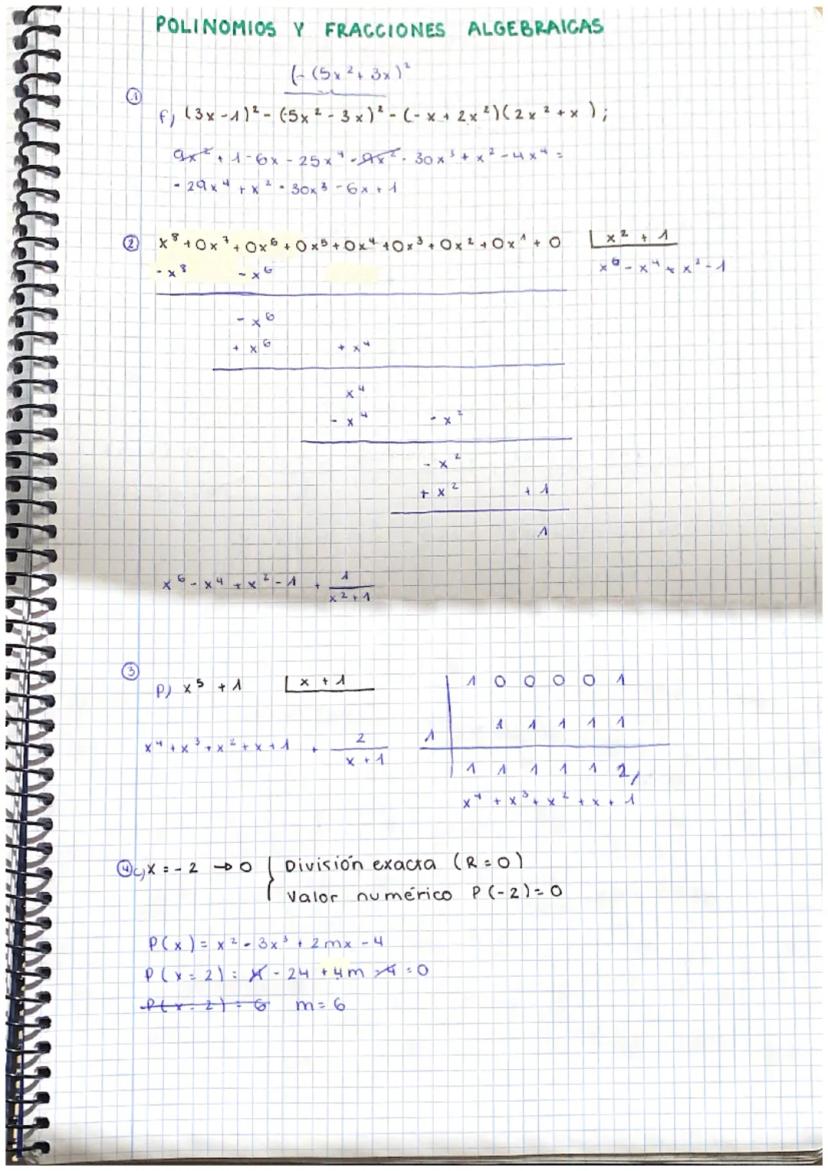 POLINOMIOS Y FRACCIONES ALGEBRAICAS
(-(5x²+3x)²
① f) (3x-1)² - (-5x² - 3x)² - (-x + 2x²)(2x² + x);
9x² + 1 - 6x - 25x⁴ - 9x² - 30x³ + x² - 4x⁴ =
- 29x⁴ + x² - 30x³ - 6x + 1
② x⁸ + 0x⁷ + 0x⁶ + 0x⁵ + 0x⁴ + 0x³ + 0x² + 0x¹ + 0 | x² + 1
- x⁸ - x⁶ x⁶ - x⁴ + x² - 1
- x⁶
+ x⁶ + x⁴
x⁴
- x⁴ - x²
- x²
+ x² + 1
1
x⁶ - x⁴ + x² - 1 + 1/(x²+1)
③ p) x⁵ + 1 | x + 1
x⁴ + x³ + x² + x + 1 + 2/(x+1)
1 0 0 0 0 1
1 1 1 1 1
1
1 1 1 1 1 2
x⁴ + x³ + x² + x + 1
④ c) x = -2 → 0 { División exacta (R = 0)
Valor numérico P(-2) = 0
P(x) = x² - 3x³ + 2mx - 4
P(x=2) = 4 - 24 + 4m - 4 = 0
P(x=2) = 6 m = 6